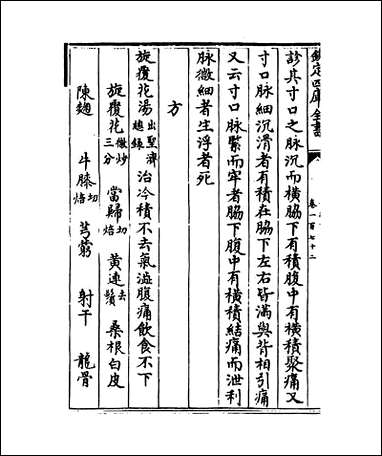 欽定四庫全書
卷一百七十二
診其寸口之脉沉而橫脇下有積腹中有橫積聚痛又
寸口脉細沉滑者有積在脇下左右皆滿與背相引痛
又云寸口脉緊而牢者脇下腹中有橫積結痛而泄利
脉微細者生浮者死
方
旋覆花湯出聖濟總錄治冷積不去氣澁腹痛飲食不下
旋覆花微炒三分 當歸切焙 黃連去鬚 桑根白皮
陳麴 牛膝切焙 芎藭 射干 龍骨